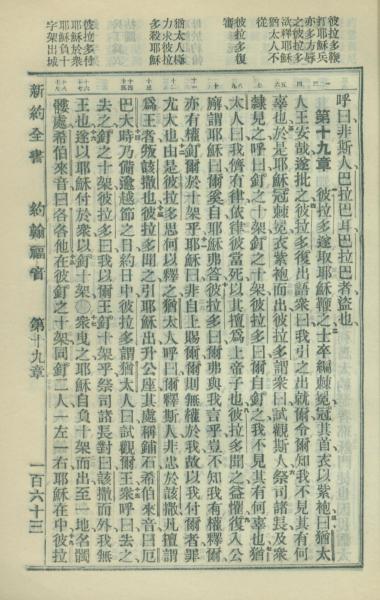 彼拉多鞭
打耶穌兵
亦多方辱
欲釋耶穌
猶太人不
從
彼拉多復
審
猶太人極
力求彼拉
多殺耶穌
彼拉多付
耶穌於衆
耶穌負十
字架出城
呼曰非斯人巴拉巴耳巴拉巴者盜也
第十九章 彼拉多遂取耶穌鞭之士卒編棘冕冠其首衣以紫袍曰猶太
人王安哉遂批之彼拉多復出語衆曰我引之出就爾令爾知我不見其有何
辜也於是耶穌冠棘冕衣紫袍而出彼拉多謂衆曰試觀斯人祭司諸長及衆
隸見之呼曰釘之十架釘之十架彼拉多曰爾自釘之我不見其有何辜也猶
太人曰我儕有律依律彼當死以其擅爲上帝子也彼拉多聞之益懼復入公
廨謂耶穌曰爾奚自耶穌弗答彼拉多曰爾弗與我言乎豈不知我有權釋爾
亦有權釘爾於十架乎耶穌曰非自上賜爾爾則無權於我故以我付爾者罪
尤大也由是彼拉多思何以釋之猶太人呼曰爾釋斯人非忠於該撒凡擅謂
爲王者叛該撒也彼拉多聞之引耶穌出升公座其處稱鋪石希伯來音曰厄
巴大時乃備逾越節之日約日中彼拉多謂猶太人曰試觀爾王衆呼曰去之
去之釘之十架彼拉多曰我以爾王釘十架乎祭司諸長對曰該撒而外我無
王也遂以耶穌付於衆以釘十架○衆曳之耶穌自負十架而出至一地名髑
髏處希伯來音曰各各他在彼釘之十架同釘二人一左一右耶穌在中彼拉
新約全書 約翰福音 第十九章 一百六十三